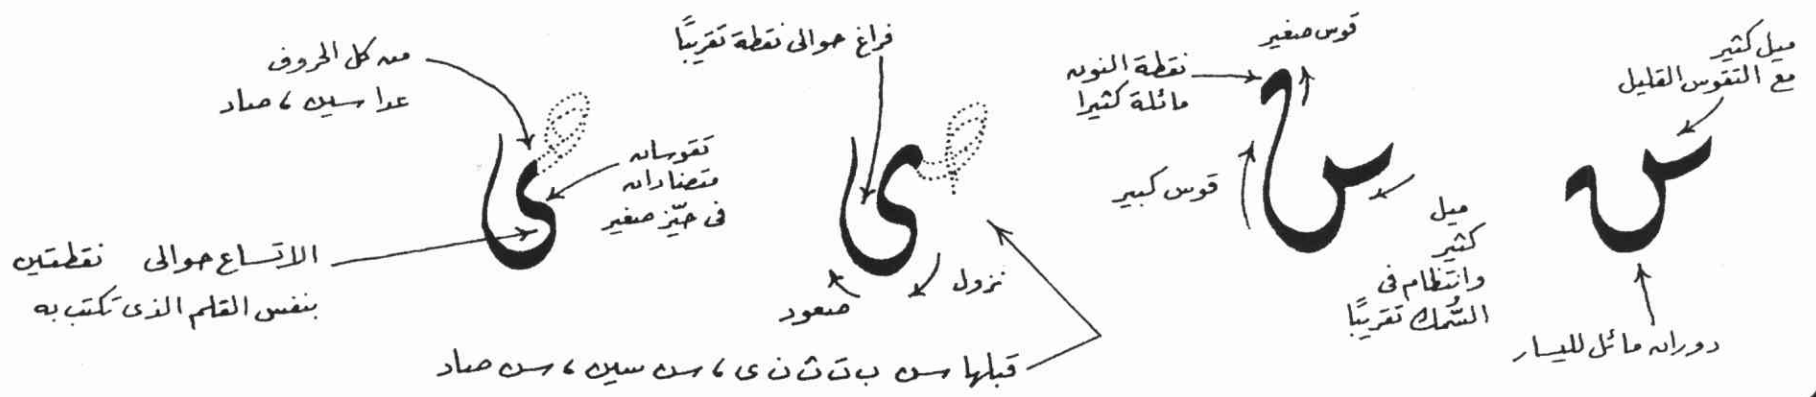 ميل كثير
مع التقوس القليل
س
دوران مائل لليسار
قوس صغير
نقطة النون
مائلة كثيرا
س
قوس كبير
ميل
كثير
وانتظام فى
السُّمك تقريبًا
فراغ حوالى نقطة تقريبًا
ى
نزول
صعود
قبلها سن ب ت ث ن ى ، سن سين ، سن صاد
من كل الحروف
عدا سين ، صاد
ى
تقوسان
متضادان
فى حيّز صغير
الاتساع حوالى نقطتين
بنفس القلم الذى تكتب به